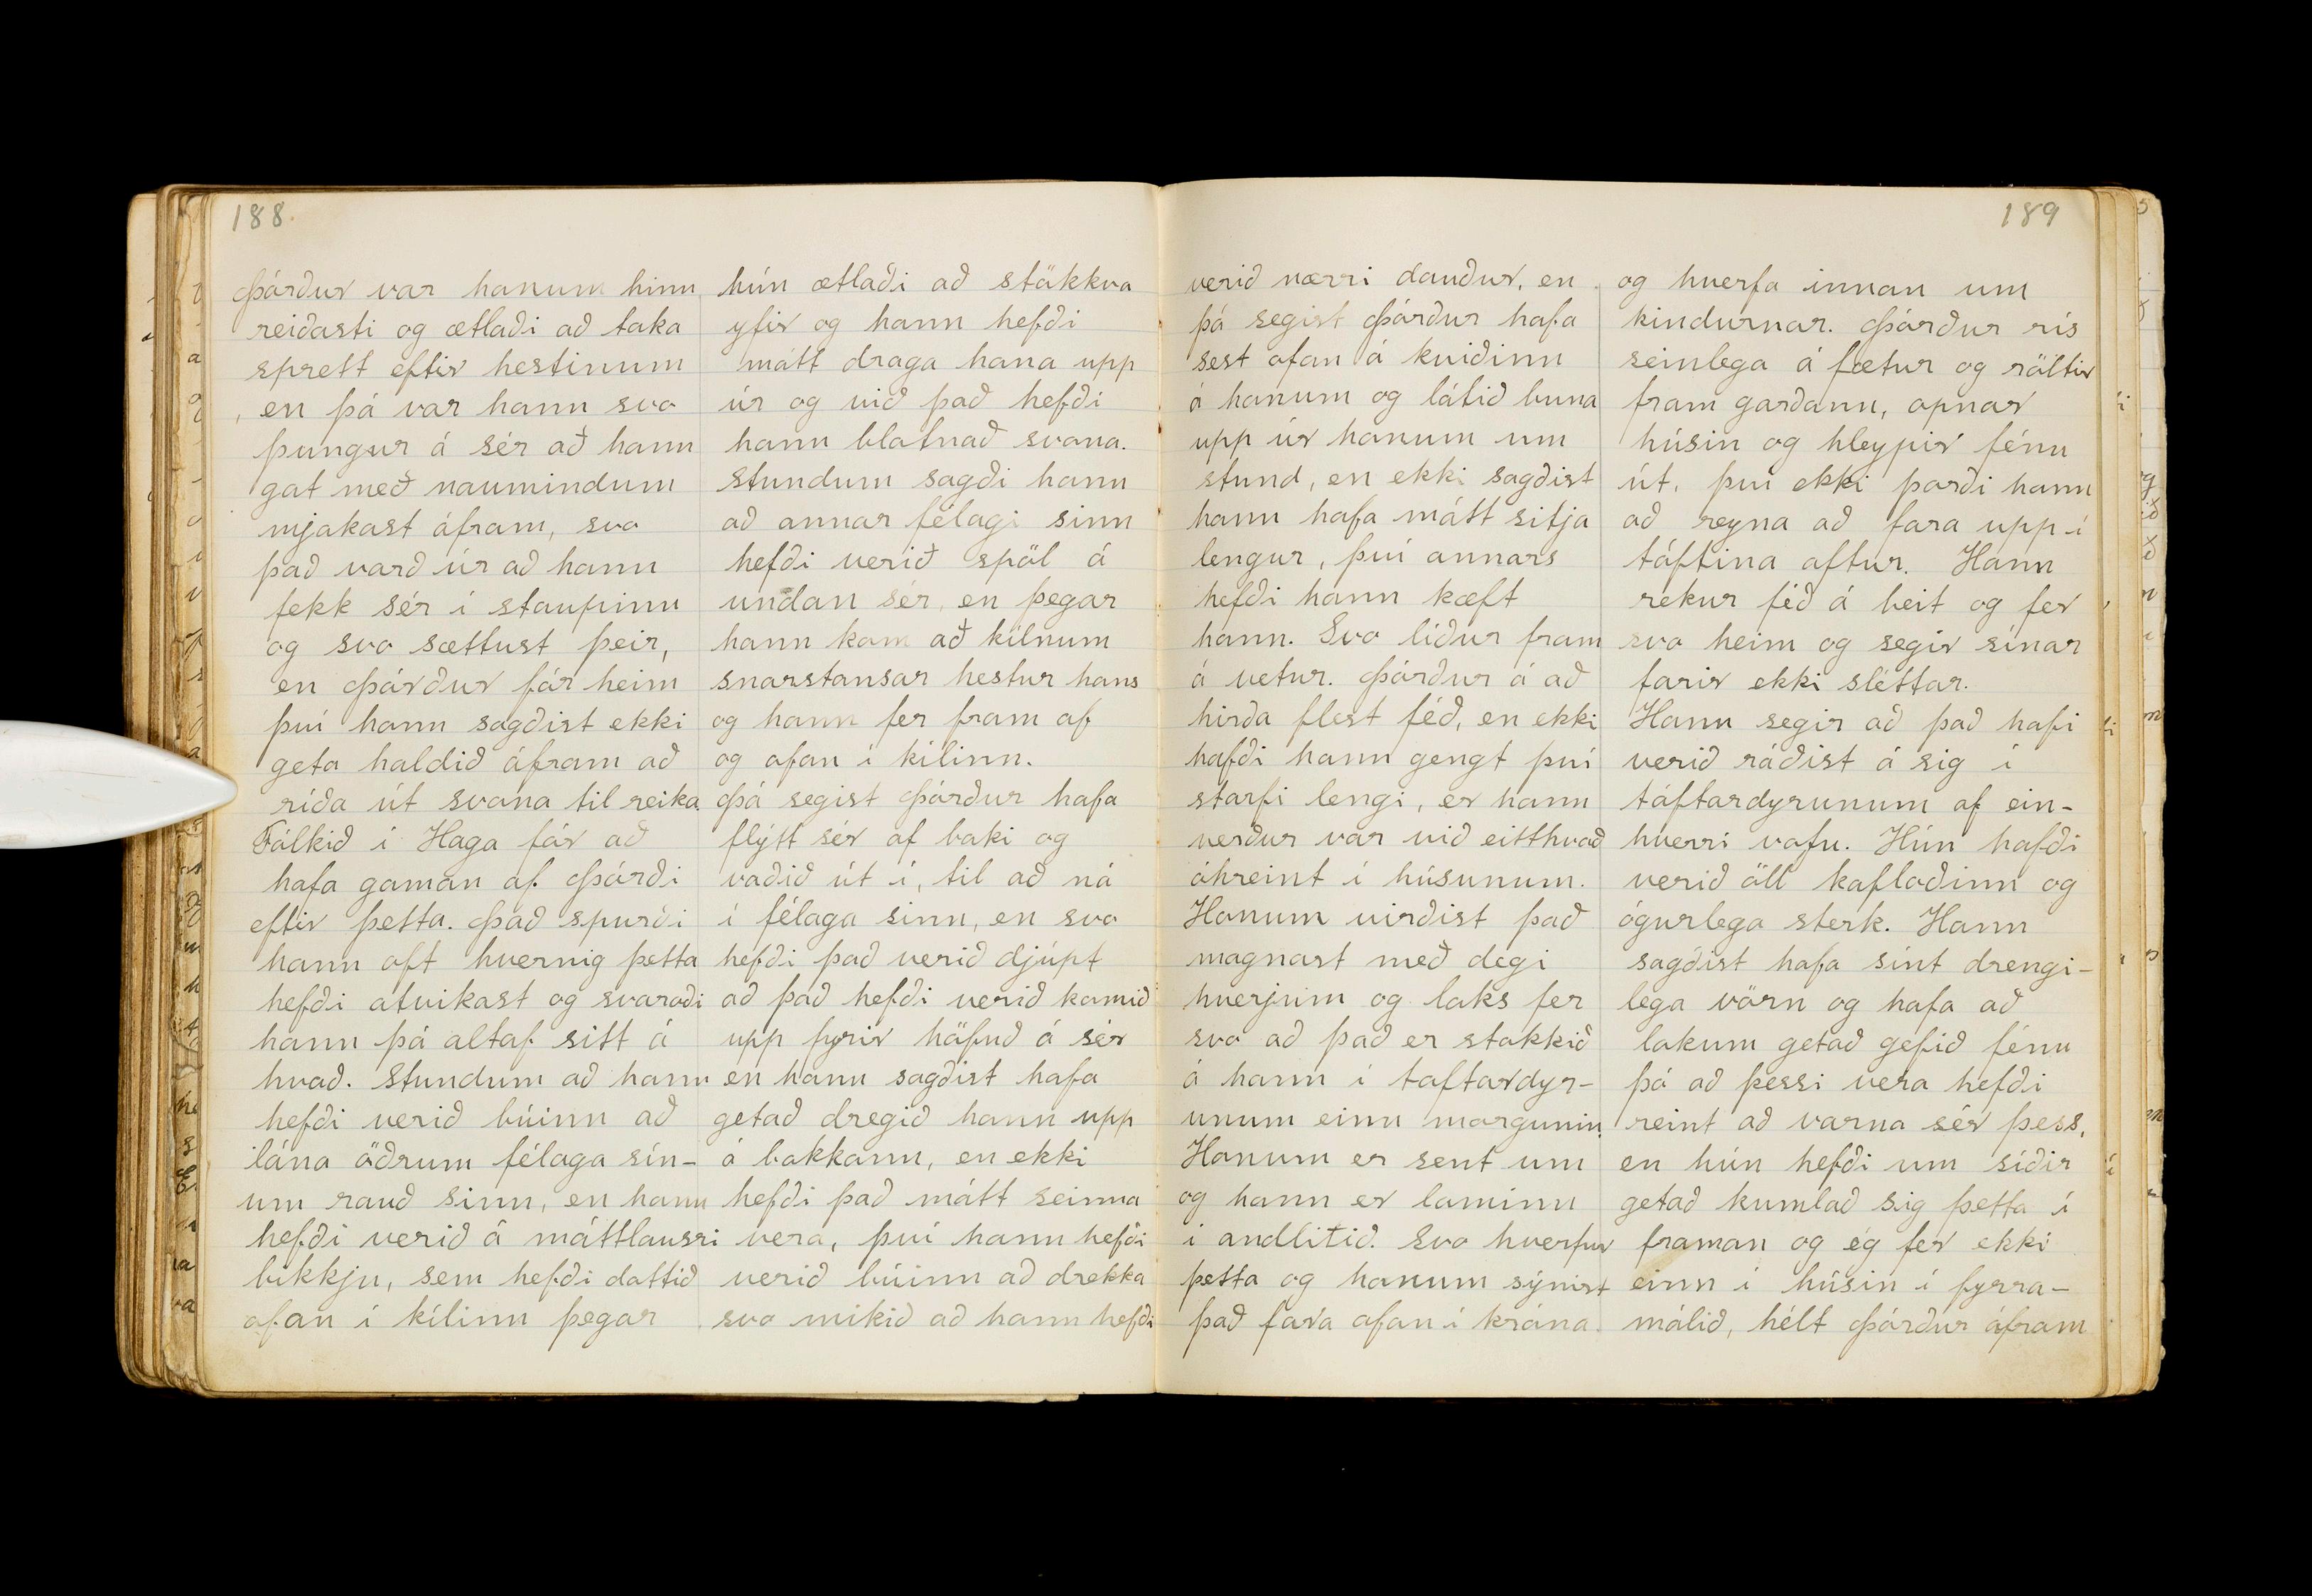 188.
Þórður var honum hinn
reiðasti og ætlaði að taka
sprett eftir hestinum
en þá var hann svo
þungur á sér að hann
gat með naumindum
mjakast áfram, svo
það varð úr að hann
fekk sér í staupinu
og svo sættust þeir,
en Þórður fór heim
því hann sagðist ekki
geta haldið áfram að
ríða út svona til reika
Fólkið í Haga fór að
hafa gaman af Þórði
eftir þetta. Það spurði
hann oft hvernig þetta
hefði atvikast og svaraði
hann þá altaf sitt á
hvað. Stundum að hann
hefði verið búinn að
lána öðrum félaga sín-
um rauð sinn, en hann
hefði verið á máttlausri
bikkju, sem hefði dottið
ofan í kílinn þegar
hún ætlaði að stökkva
yfir og hann hefði
mátt draga hana upp
úr og við það hefði
hann blotnað svona.
Stundum sagði hann
að annar félagi sinn
hefði verið spöl á
undan sér, en þegar
hann kom að kílnum
snarstansar hestur hans
og hann fer fram af
og ofan í kílinn.
Þá segist Þórður hafa
flýtt sér af baki og
vaðið út í, til að ná
í félaga sinn, en svo
hefði það verið djúpt
að það hefði verið komið
upp fyrir höfuð á sér
en hann sagðist hafa
getað dregið hann upp
á bakkann, en ekki
hefði það mátt seinna
vera, því hann hefði
verið búinn að drekka
svo mikið að hann hefði
189
verið nærri dauður, en
þá segist Þórður hafa
sest ofan á kviðinn
á honum og látið buna
upp úr honum um
stund, en ekki sagðist
hann hafa mátt sitja
lengur, því annars
hefði hann kæft
hann. Svo líður fram
á vetur. Þórður á að
hirða flest féð, en ekki
hafði hann gengt því
starfi lengi, er hann
verður var við eitthvað
óhreint í húsunum.
Honum virðist það
magnast með degi
hverjum og loks fer
svo að það er stokkið
á hann í toftardyr-
unum einn morguninn.
Honum er sent um
og hann er laminn
í andlitið. Svo hverfur
þetta og honum sýnist
það fara ofan í króna
og hverfa innan um
kindurnar. Þórður rís
seinlega á fætur og röltir
fram garðann, opnar
húsin og hleypir fénu
út, því ekki þorði hann
að reyna að fara upp í
tóftina aftur. Hann
rekur féð á beit og fer
svo heim og segir sínar
farir ekki sléttar.
Hann segir að það hafi
verið ráðist á sig í
tóftardyrunum af ein-
hverri vofu. Hún hafði
verið öll kafloðinn og
ógurlega sterk. Hann
sagðist hafa sínt drengi-
lega vörn og hafa að
lokum getað gefið fénu
þó að þessi vera hefði
reint að varna sér þess,
en hún hefði um síðir
getað kumlað sig þetta í
framan og ég fer ekki
einn í húsin í fyrra-
málið, hélt Þórður áfram